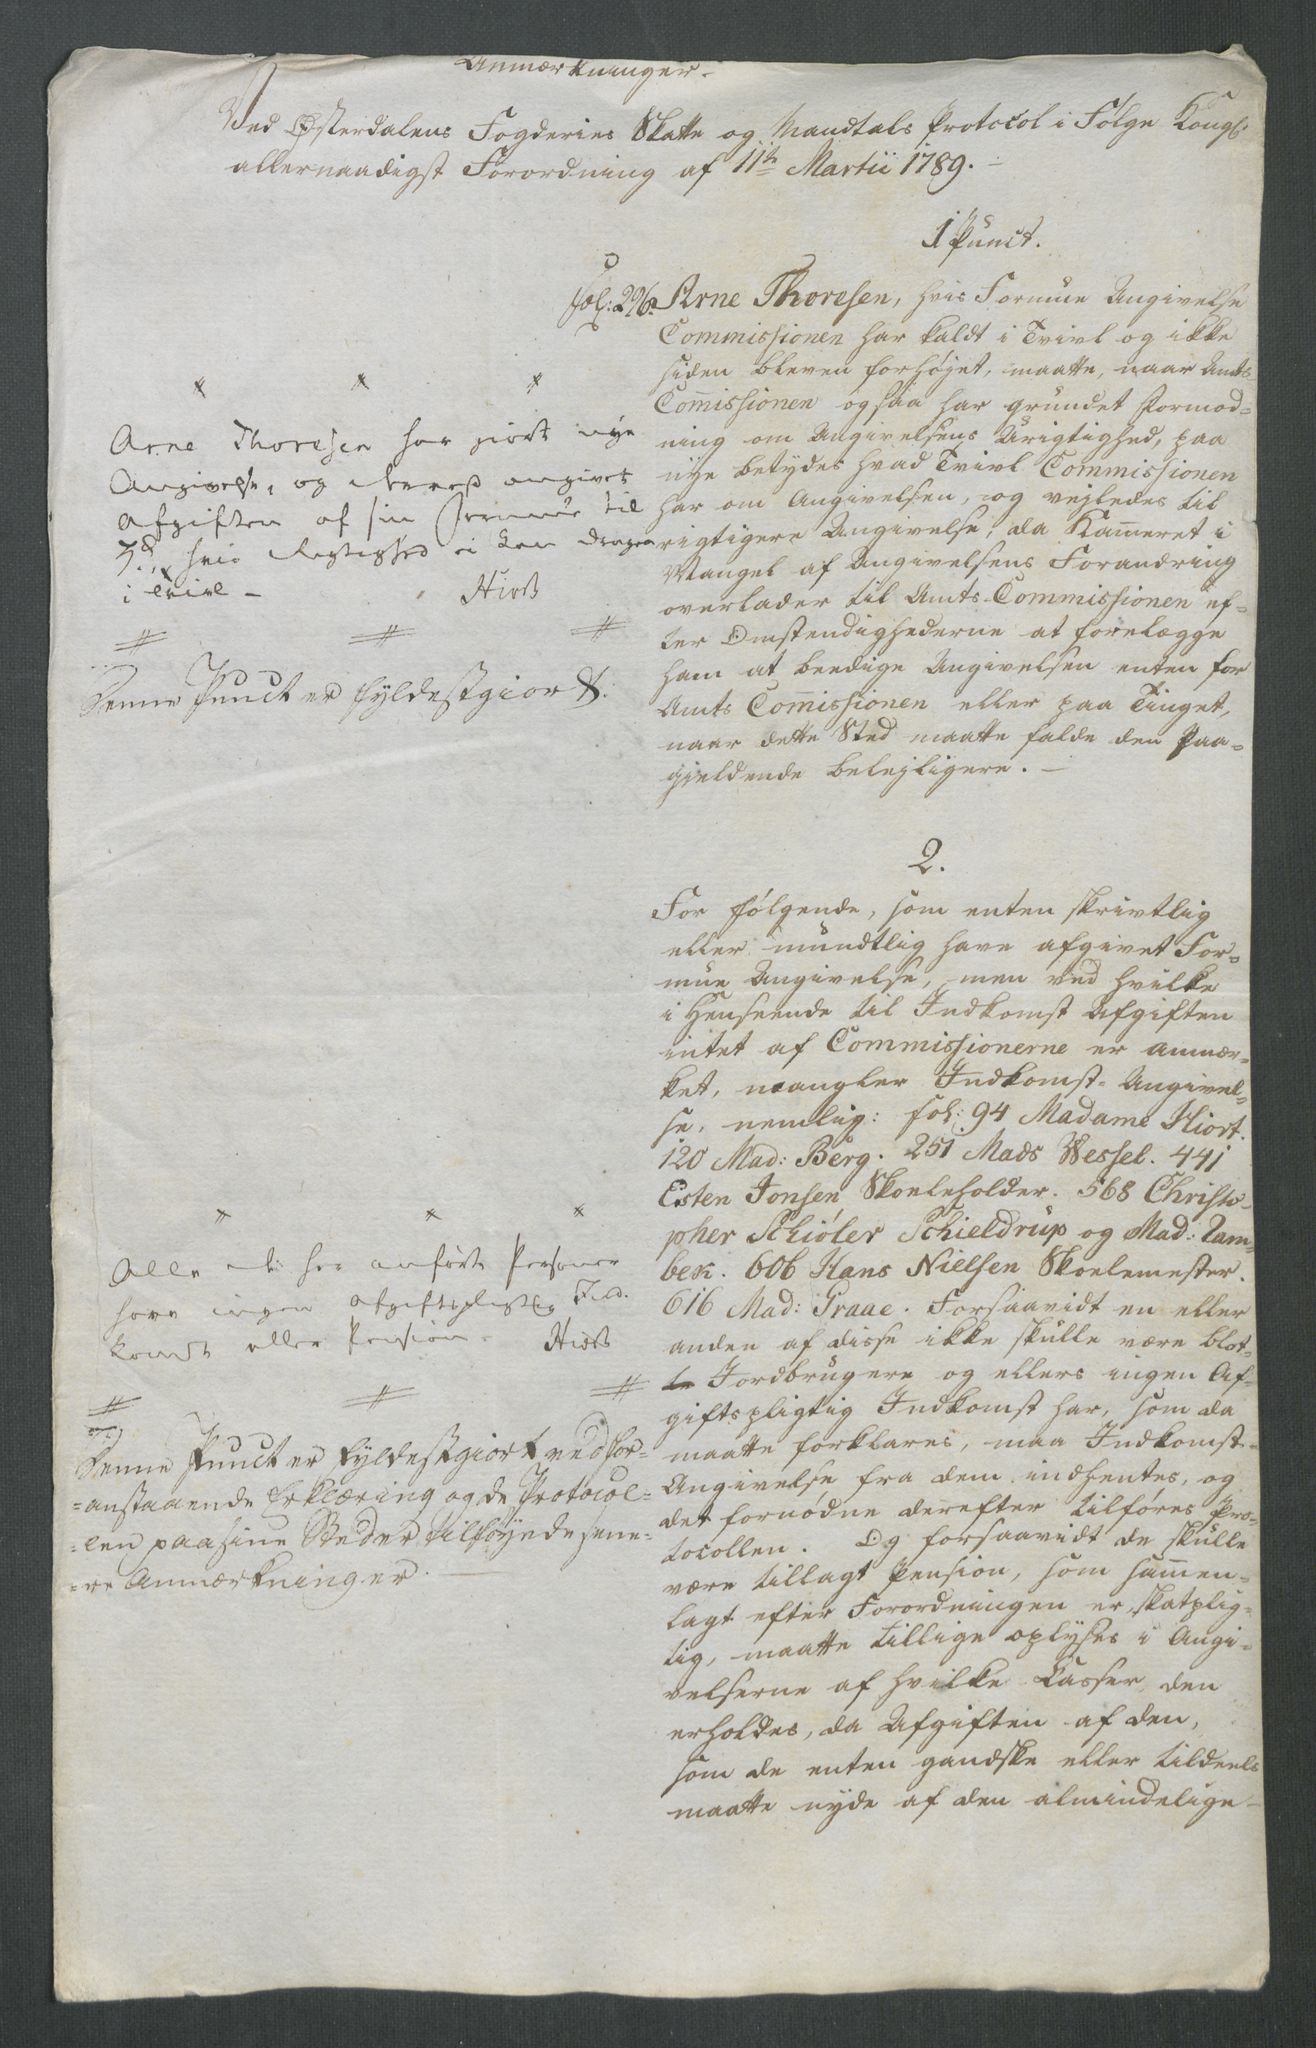 Anmærkninger.
Ved Østerdalens Fogderies Skatte og Mandtals Protocol i Følge Kongl:
allernaadigst Forordning af 11te Martii 1789.
1 Punct.
fol: 226. Arne Thoresen, hvis Formue Angivelse
Commissionen har kaldt i Tvivl og ikke
siden bleven forhøjet, maatte, naar Amts
Com̄issionen ogsaa har grundet Formod-
ning om Angivelsens Urigtighed, paa
nye betydes hvad Tvivl Commissionen
har om Angivelsen, og vejledes til
rigtigere Angivelse, da Kam̄eret i
Mangel af Angivelsens Forandring
overlader til Amts-Commissionen ef-
ter Omstendighederne at forelægge
ham at beedige Angivelsen enten for
Amts Com̄issionen eller paa Tinget,
naar dette Sted maatte falde den Paa-
gieldende belejligere.
Arne Thoresen har giort nye
Angivelse, og derved angivet
Afgiften af sin Formue til
hvis Rigtighed ei kan drages
i Tvivl -
Hiort
Denne Punct er fyldestgiort.
2.
For følgende, som enten skrivtlig
eller mundtlig have afgivet For-
mue Angivelse, men ved hvilke
i Henseende til Indkomst Afgiften
intet af Commissionerne er anmær-
ket, mangler Indkomst-Angivel-
se, nemlig: fol: 94 Madame Hiort.
120 Mad: Berg. 251 Mads Wessel. 441
Esten Jonsen Skoeleholder. 568 Christo-
pher Schiøler Schieldrup og Mad: Ram-
bek. 606 Hans Nielsen Skoelemester.
616 Mad: Graae. Forsaavidt en eller
anden af disse ikke skulle være blot-
te Jordbrugere og ellers ingen Af-
giftspligtig Indkomst har, som da
maatte forklares, maa Indkomst-
Angivelse fra dem indhentes, og
det fornødne derefter tilføres Pro-
tocollen. Og forsaavidt de skulle
være tillagt Pension, som sam̄en-
lagt efter Forordningen er skatplig-
tig, maatte tillige oplyses i Angi-
velserne af hvilke Casser den
erholdes, da Afgiften af den,
som de enten gandske eller tildeels
maatte nyde af den almindelige
Alle de her anførte Personer
have ingen afgiftspligtig Ind-
komst eller Pension.
Hiort
Denne Punct er fyldestgiort ved for-
-anstaaende Erklæring og de Protocol-
-len paa sine Steder tilføyede sene-
-re Anmærkninger.